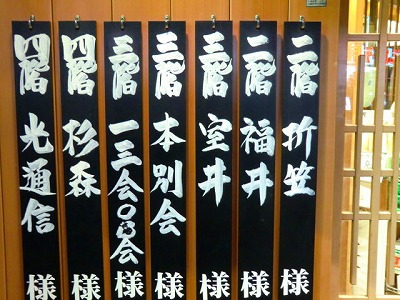 二階 折笠 様
二階 福井 様
三階 室井 様
三階 本別会 様
三階 一三会OB会 様
四階 杉森 様
四階 光通信 様